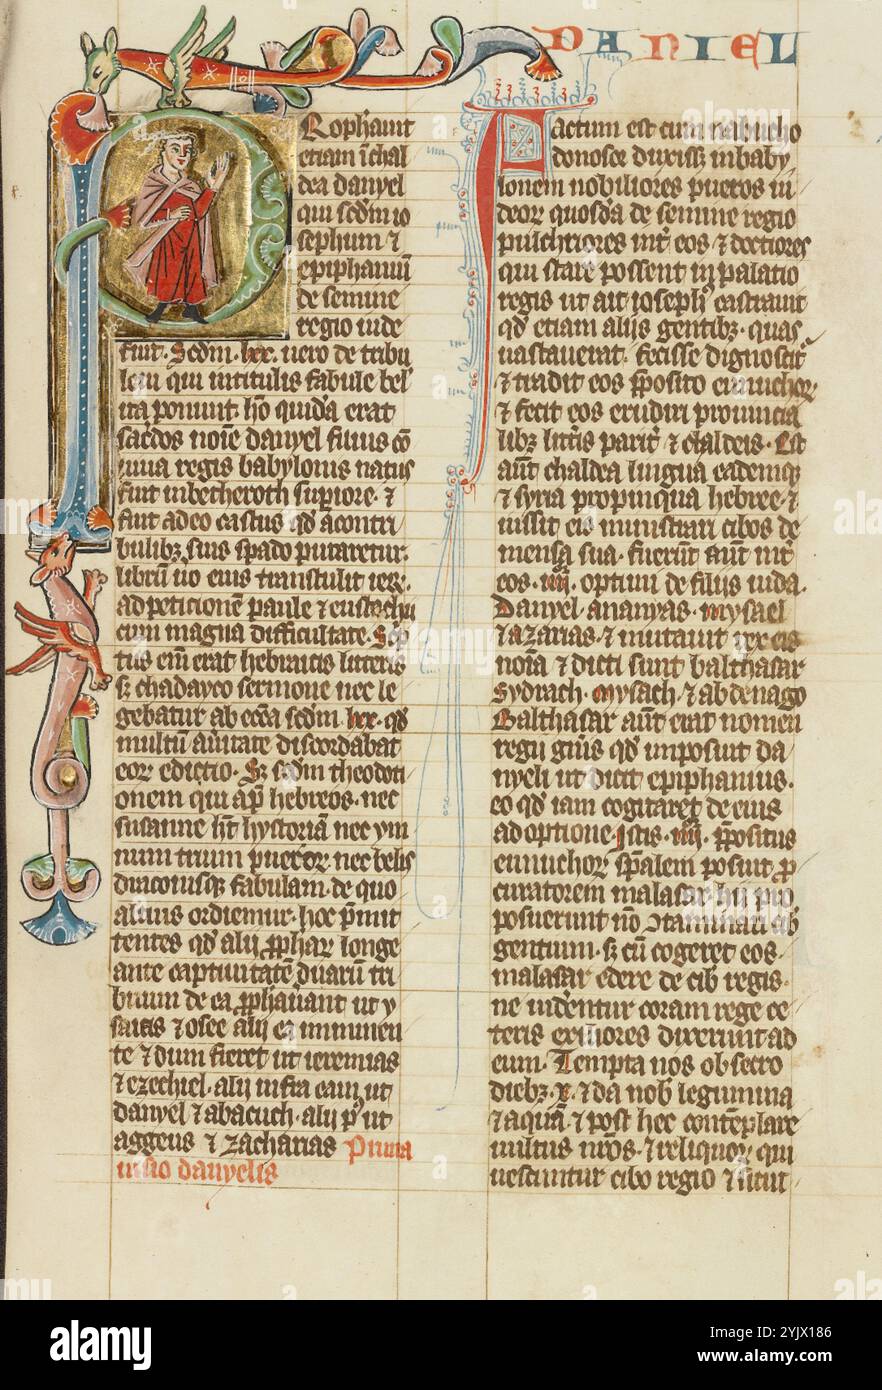 DANIEL
Prophauit
etiam ī chal
dea danyel
qui scdm io
sephum ⁊
epiphaniū
de semine
regio iude
fuit. Scdm. lxx. uero de tribu
leui qui intitulis fabule bel
ita ponunt. hō quidā erat
sacdos noīe danyel filius cō
uiua regis babylonis natus
fuit inbetheroth supiore. ⁊
fuit adeo castus qd a contri
bulibꝫ suis spado putaretur.
librū uo eius transtulit ier.
ad peticionē paule ⁊ eustochii
cum magna difficultate. Scp
tus eīm erat hebraicis litteris
sꝫ chadayco sermone nec le
gebatur ab eccā scdm. lxx. qd
multū aūtate discordabat
eor edictio. Sꝫ scdm theodoti
onem qui ap hebreos. nec
susanne ht hystoriā nec ym
num trium pueror nec belis
draconisqꝫ fabulam. de quo
alius ordiemur. hoc pmit
tentes qd alij pphar longe
ante captiuitatē duarū tri
buum de ea pphauant ut y
saias ⁊ osee alij ea imminen
te ⁊ dum fieret ut ieremias
⁊ ezechiel. alij infra eam ut
danyel ⁊ abacuch. alij p ut
aggeus ⁊ zacharias Prima
uisio danyelis
Factum est cum nabucho
donosor duxiss; in baby
lonem nobiliores pueros iu
deor quosdā de semine regio
pulchriores int eos ⁊ doctiores
qui stare possent in palatio
regis ut ait ioseph castrauit
qd etiam aliis gentibꝫ. quas
uastauerat. fecisse dignoscit
⁊ tradit eos pposito eunuchor
⁊ fecit eos erudiri prouincia
libꝫ littis parit ⁊ chaldeis. Est
aut chaldea lingua eademqꝫ
⁊ syria propinqua hebree. ⁊
iussit eis ministrari cibos de
mensa sua. fuerūt aut int
eos. iiij. optimi de filijs iuda.
Danyel. ananyas. mysael
⁊ azarias. ⁊ mutauit rex eis
noīa ⁊ dicti sunt balthasar
Sydrach. mysach. ⁊ abdenago
Balthasar aut erat nomen
regii gnis qd imposuit da
nyeli ut dicit epiphanius.
eo qd iam cogitaret de eius
adoptione Istis. iiij. ppositus
eunuchor spalem posuit p
curatorem malasar hij pro
posuerunt nō contaminari cib
gentium. sꝫ cū cogeret eos.
malasar edere de cib regis.
ne uiderentur coram rege ce
teris exiliores dixerunt ad
eum. Tempta nos obsecro
diebꝫ. x. ⁊ da nob legumina
⁊ aquā. ⁊ post hec contēplare
uultus nros. ⁊ reliquor qui
uescuntur cibo regio ⁊ sicut
alamy
Image ID: 2YJX186
www.alamy.com